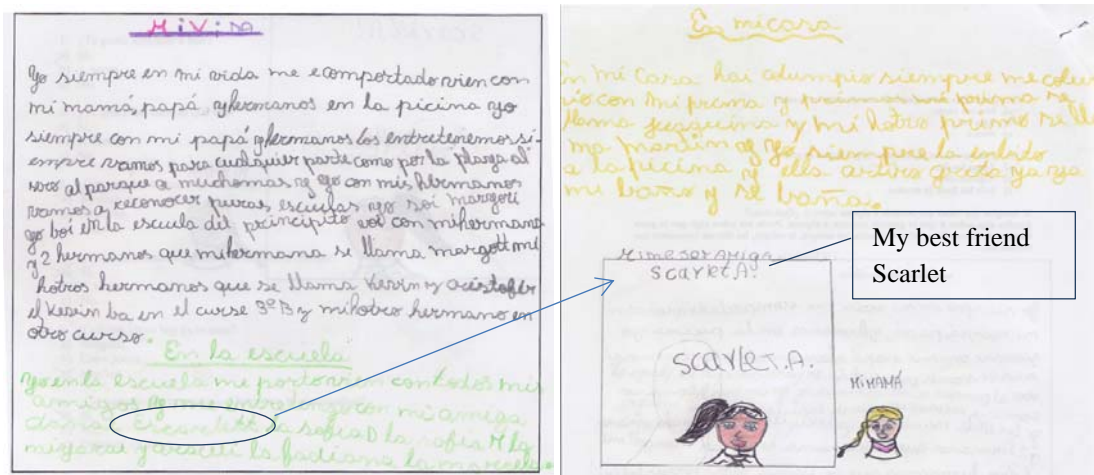 Mi ViDA
Yo siempre en mi vida me e comportado vien con
mi mamá, papá y hermanos en la picina yo
siempre con mi papá y hermanos los entretenemos si-
empre vamos para cualquier parte como por la plaza al
soo al parque a muchomas y yo con mis hermanos
vamos a reconocer puras escuelas yo soi margott
yo boi en la escuela del principito voi con mihermana
y 2 hermanos que mihermana se llama margott mi
hotros hermanos que se llama Kevin y cristofer
el Kevin ba en el curse 3º B y mihotro hermano en
otro curso.
En la escuela
Yo en la escuela me porto vien con todos mis
amigos y me entretengo con mi amiga
escarlett la sofia D la sofia M la
la fadiana la marcela.
En micasa
En mi casa hai columpio siempre me colu
pio con mi prima y primos mi prima se
llama juaquina y mi hotro primo se lla
ma martin y yo siempre la inbito
a la picina y ella arto grita ya ya
me baño y se baña.
My best friend
Scarlet
Mi mejor AMiga
ScarleT.A.
ScarleT.A.
Mi MAMÁ